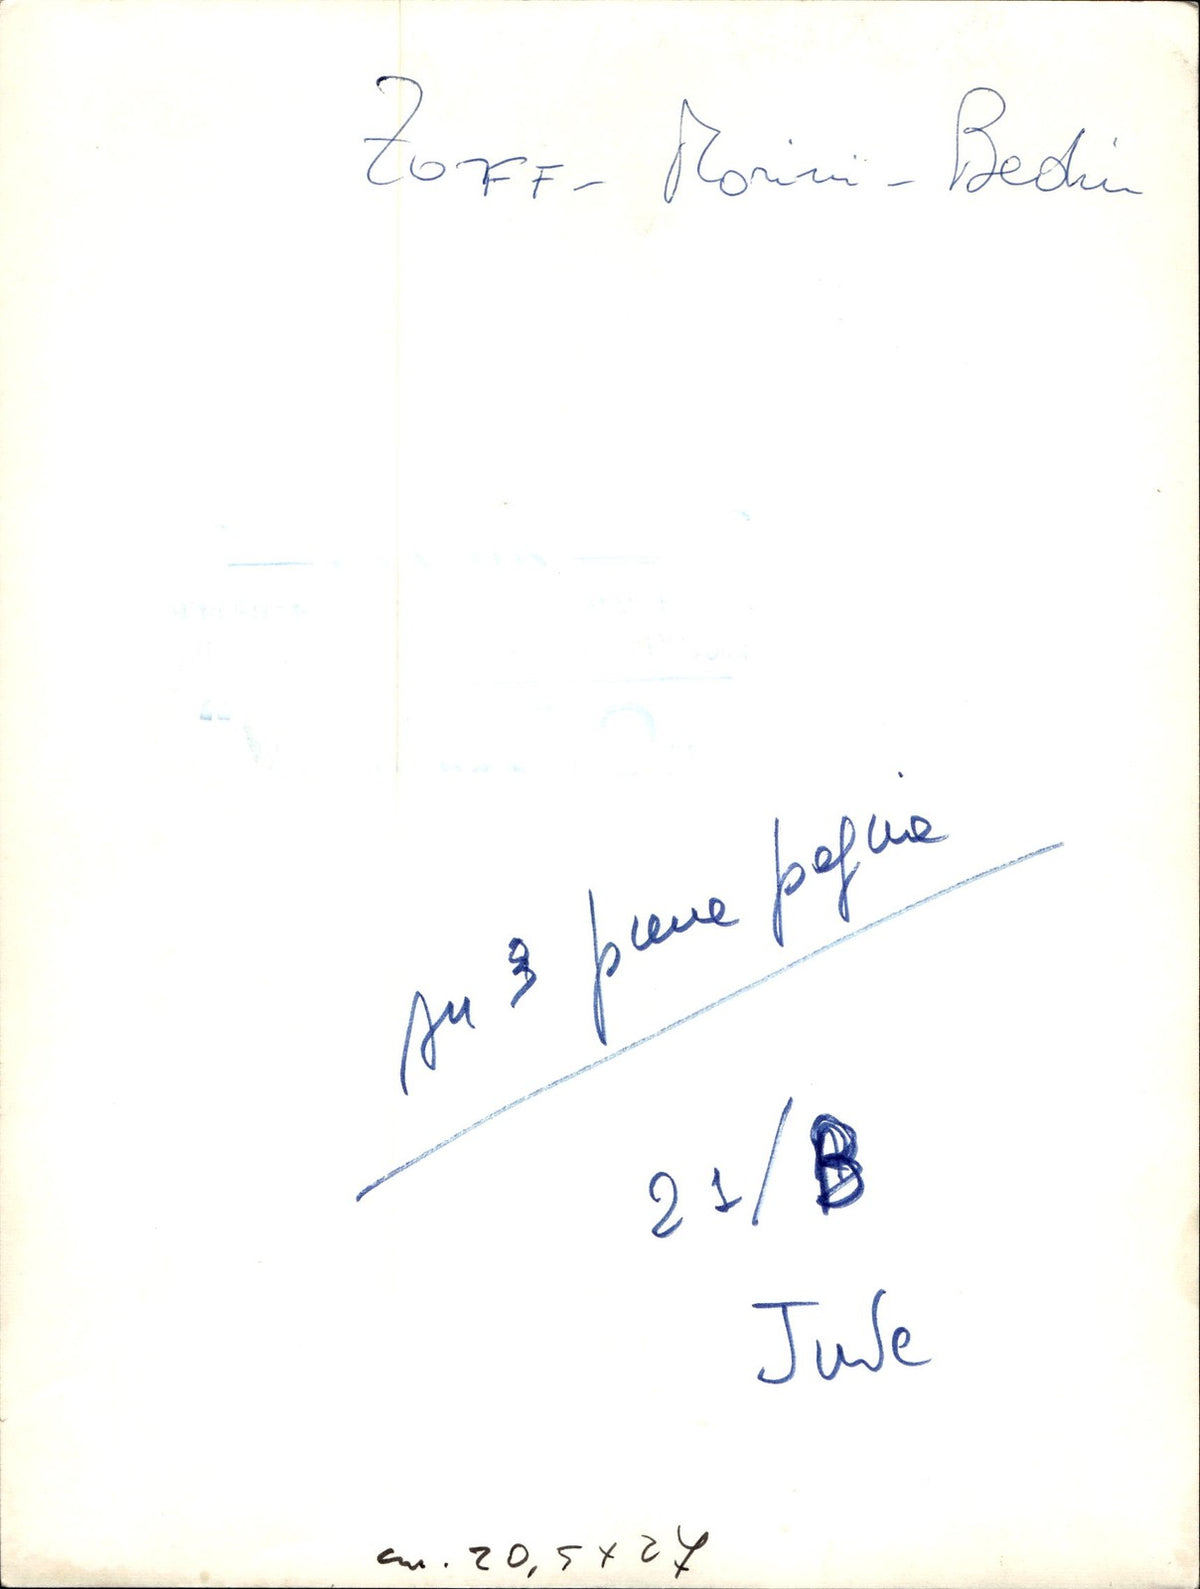 Zoff - Morini - Bedin
su 3 piena pagina
21/B
Juve
cm. 20,5 x 27